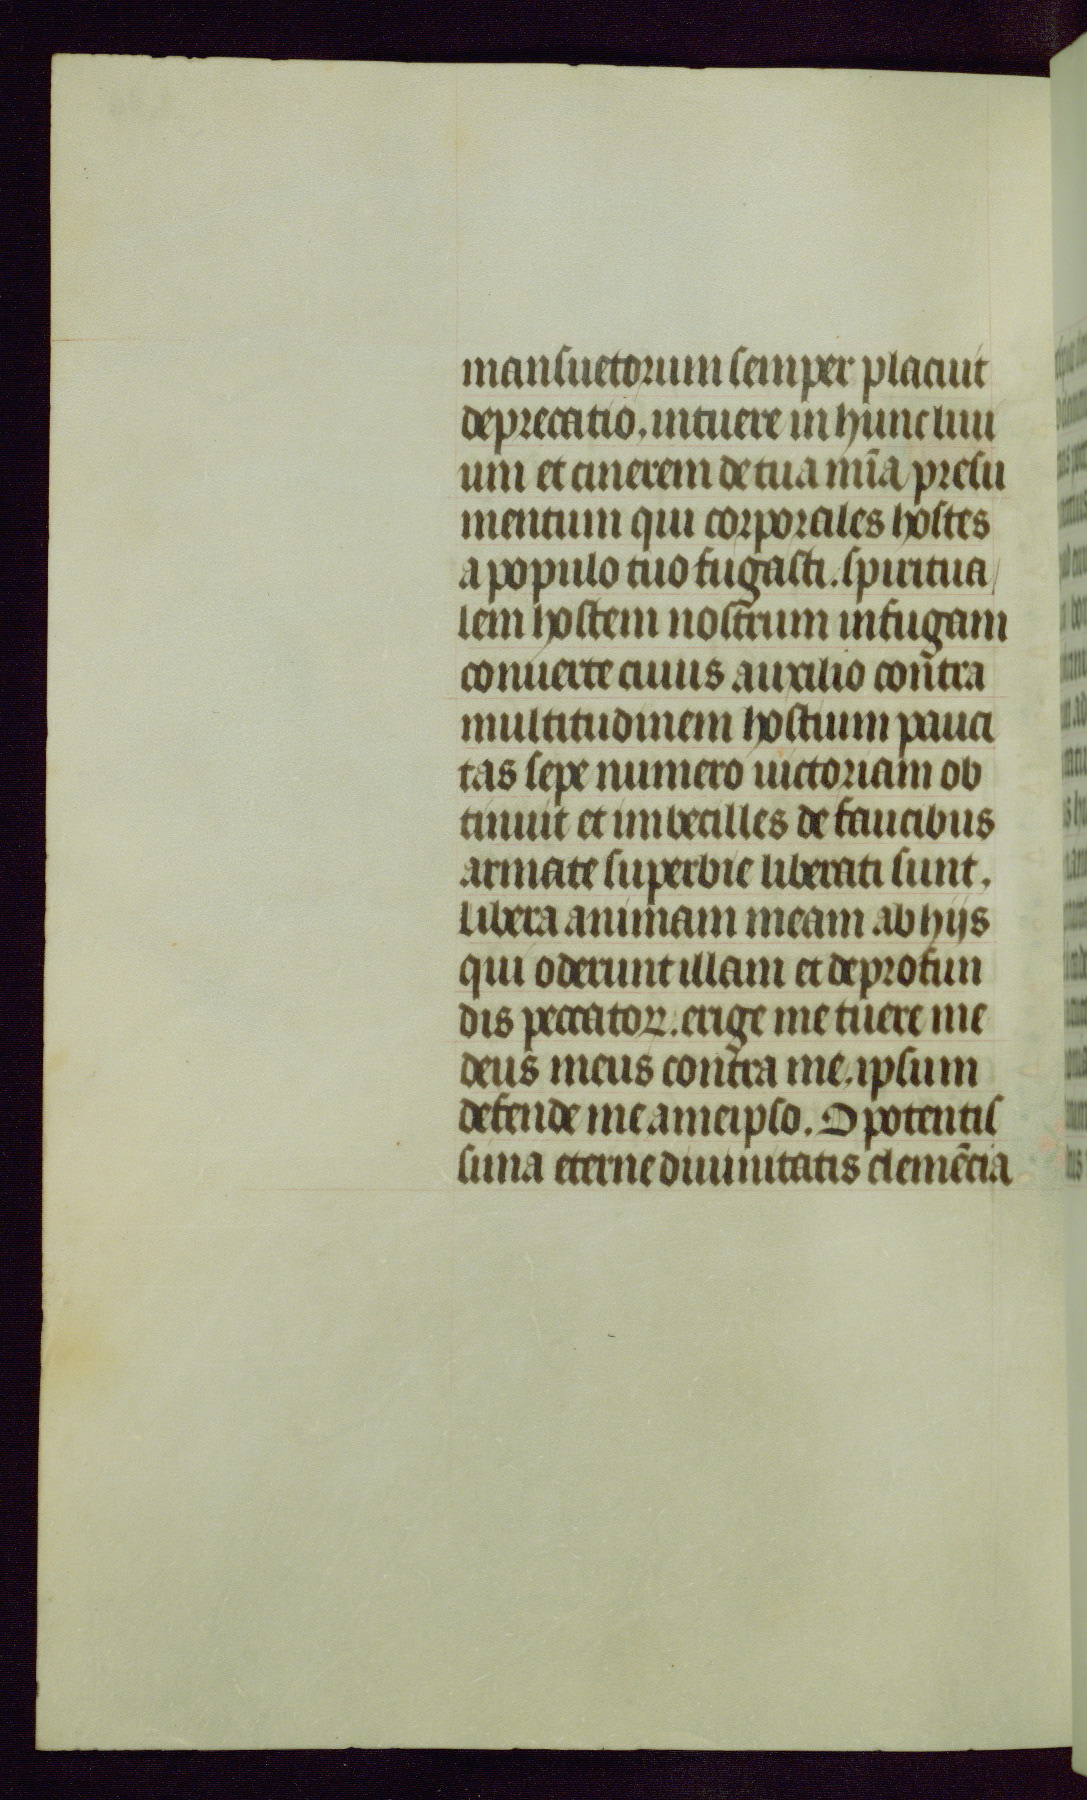 mansuetorum semper placuit
deprecatio. intuere in hunc limi
um et cinerem de tua mia̅ presu
mentum qui corporales hostes
a populo tuo fugasti. spiritua
lem hostem nostrum in fugam
conuerte cuius auxilio contra
multitudinem hostium pauci
tas sepe numero uictoriam ob
tinuit et imbecilles de faucibus
armate superbie liberati sunt.
libera animam meam ab hijs
qui oderunt illam et de profun
dis peccatoꝝ. erige me tuere me
deus meus contra me. ipsum
defende me a meipso. O potentis
sima eterne diuinitatis cleme̅cia